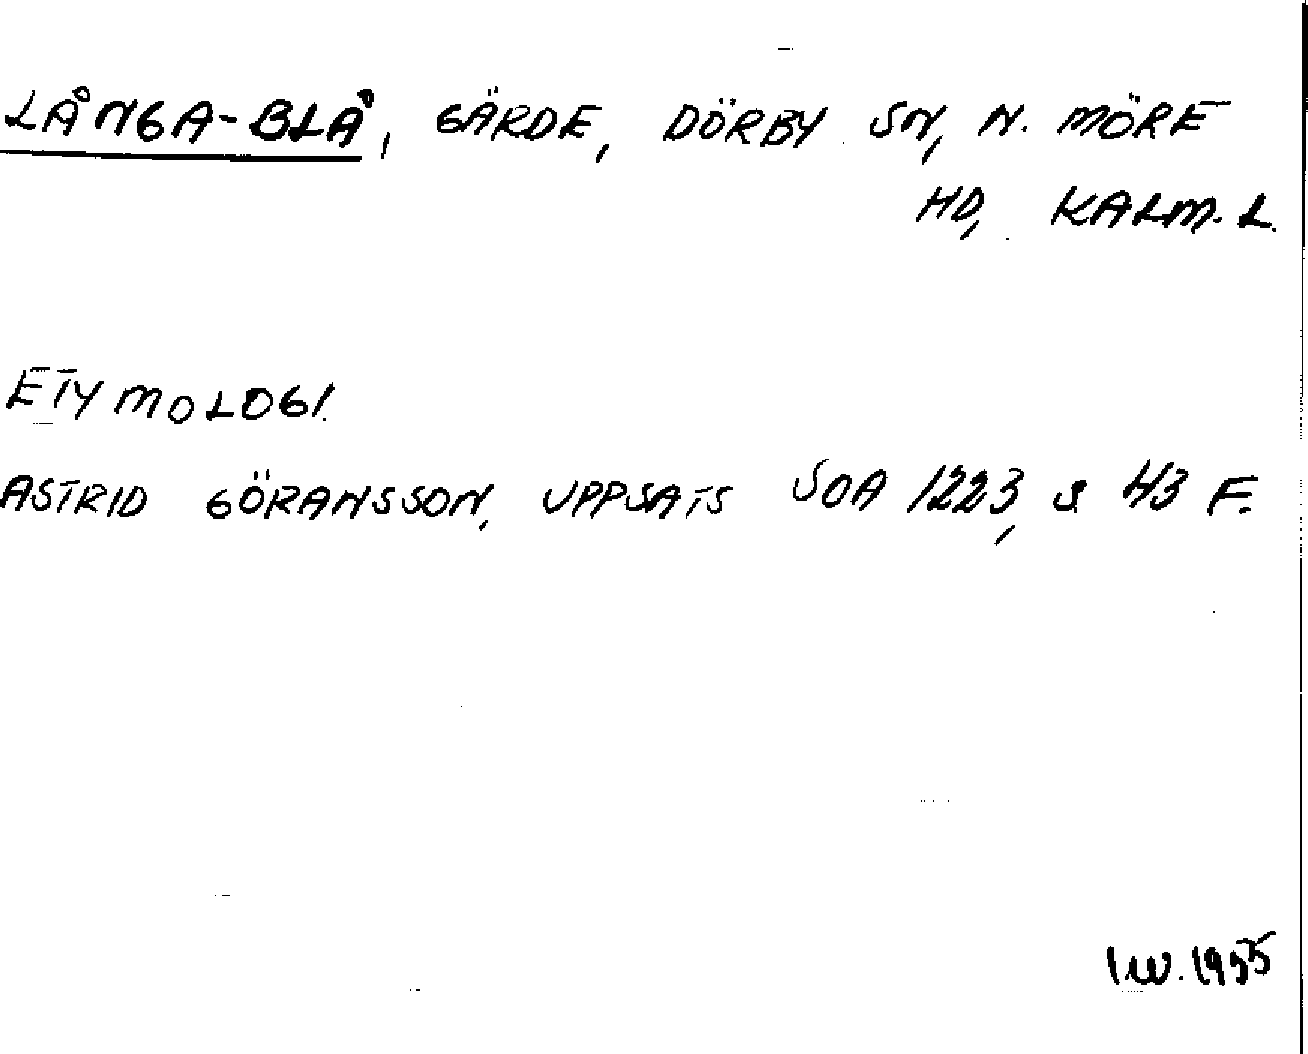 LÅNGA-BLÅ, GÄRDE, DÖRBY SN, N. MÖRE
HD, KALM. L.
ETYMOLOGI.
ASTRID GÖRANSSON, UPPSATS SOA 1223, S. 43 F.
I.W. 1955